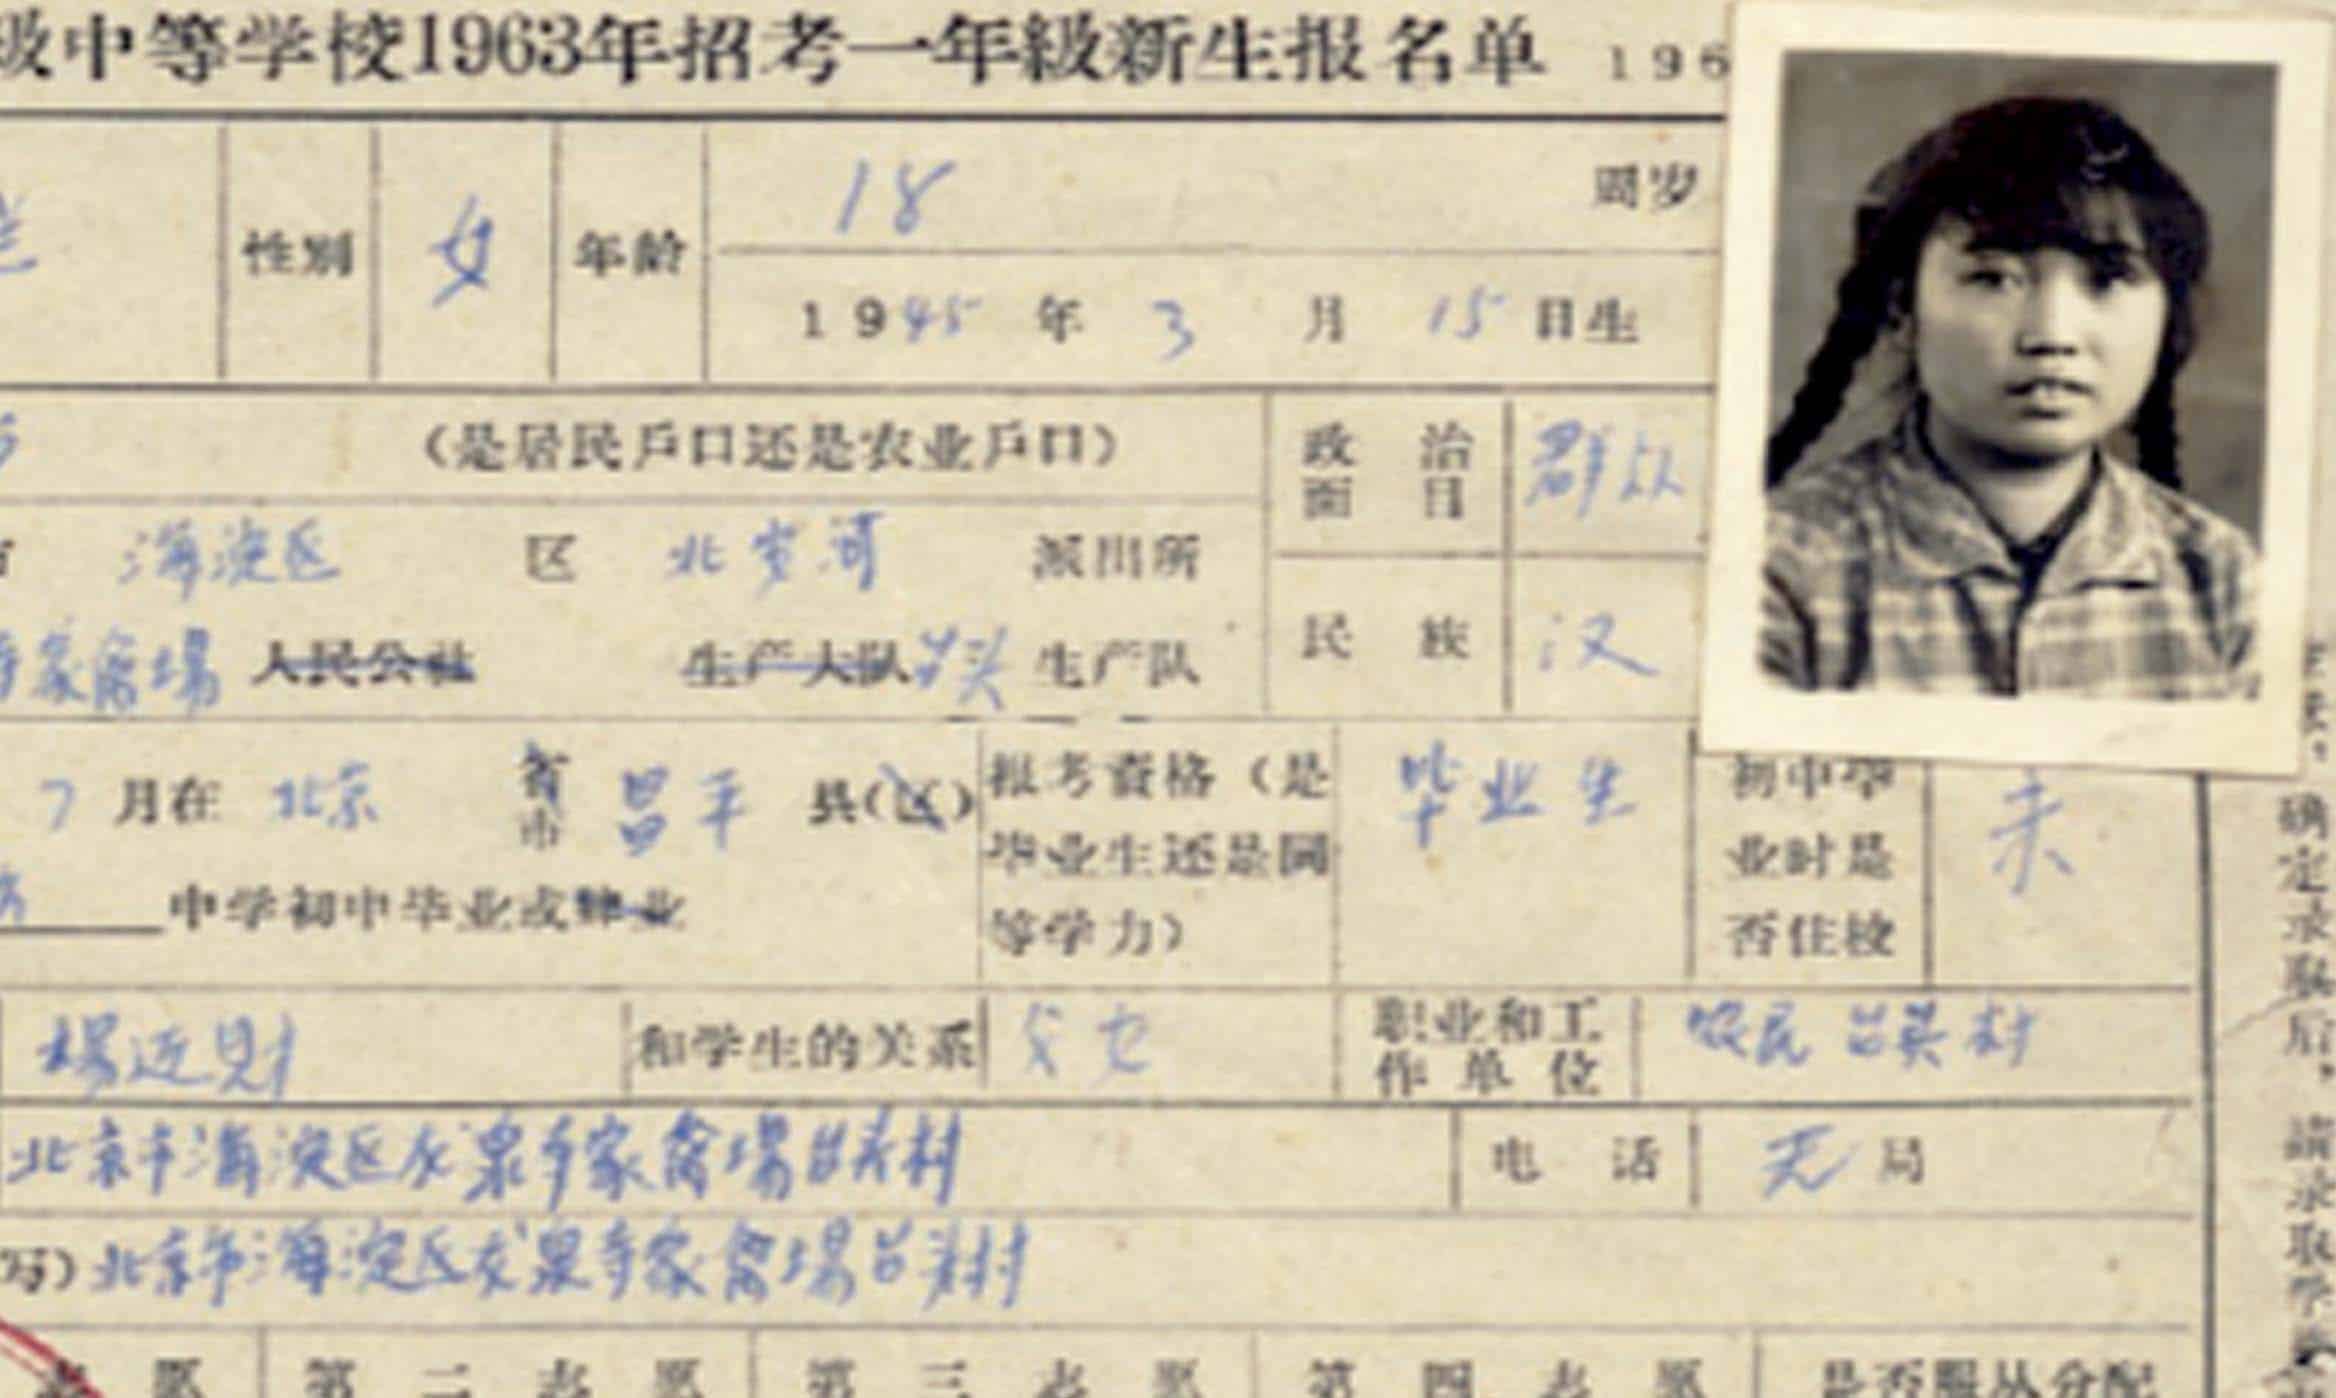 级中等学校1963年招考一年級新生报名单 196
性別 女 年龄 18 周岁
1945年3月15日生
（是居民戶口还是农业戶口） 政治面目 群众
海淀区 区 北安河 派出所
家禽場 人民公社 生产大队 台头 生产队 民族 汉
7月在 北京 省市 昌平 县(区) 报考資格（是毕业生还是同等学力） 毕业生 初中毕业时是否住校 未
中学初中毕业或肄业
楊进財 和学生的关系 父女 职业和工作单位 农民 台头村
北京市海淀区龙泉寺家禽場台头村 电话 无 局
写）北京市海淀区龙泉寺家禽場台头村
志愿 第二志愿 第三志愿 第四志愿 是否服从分配
确定录取后，請录取学